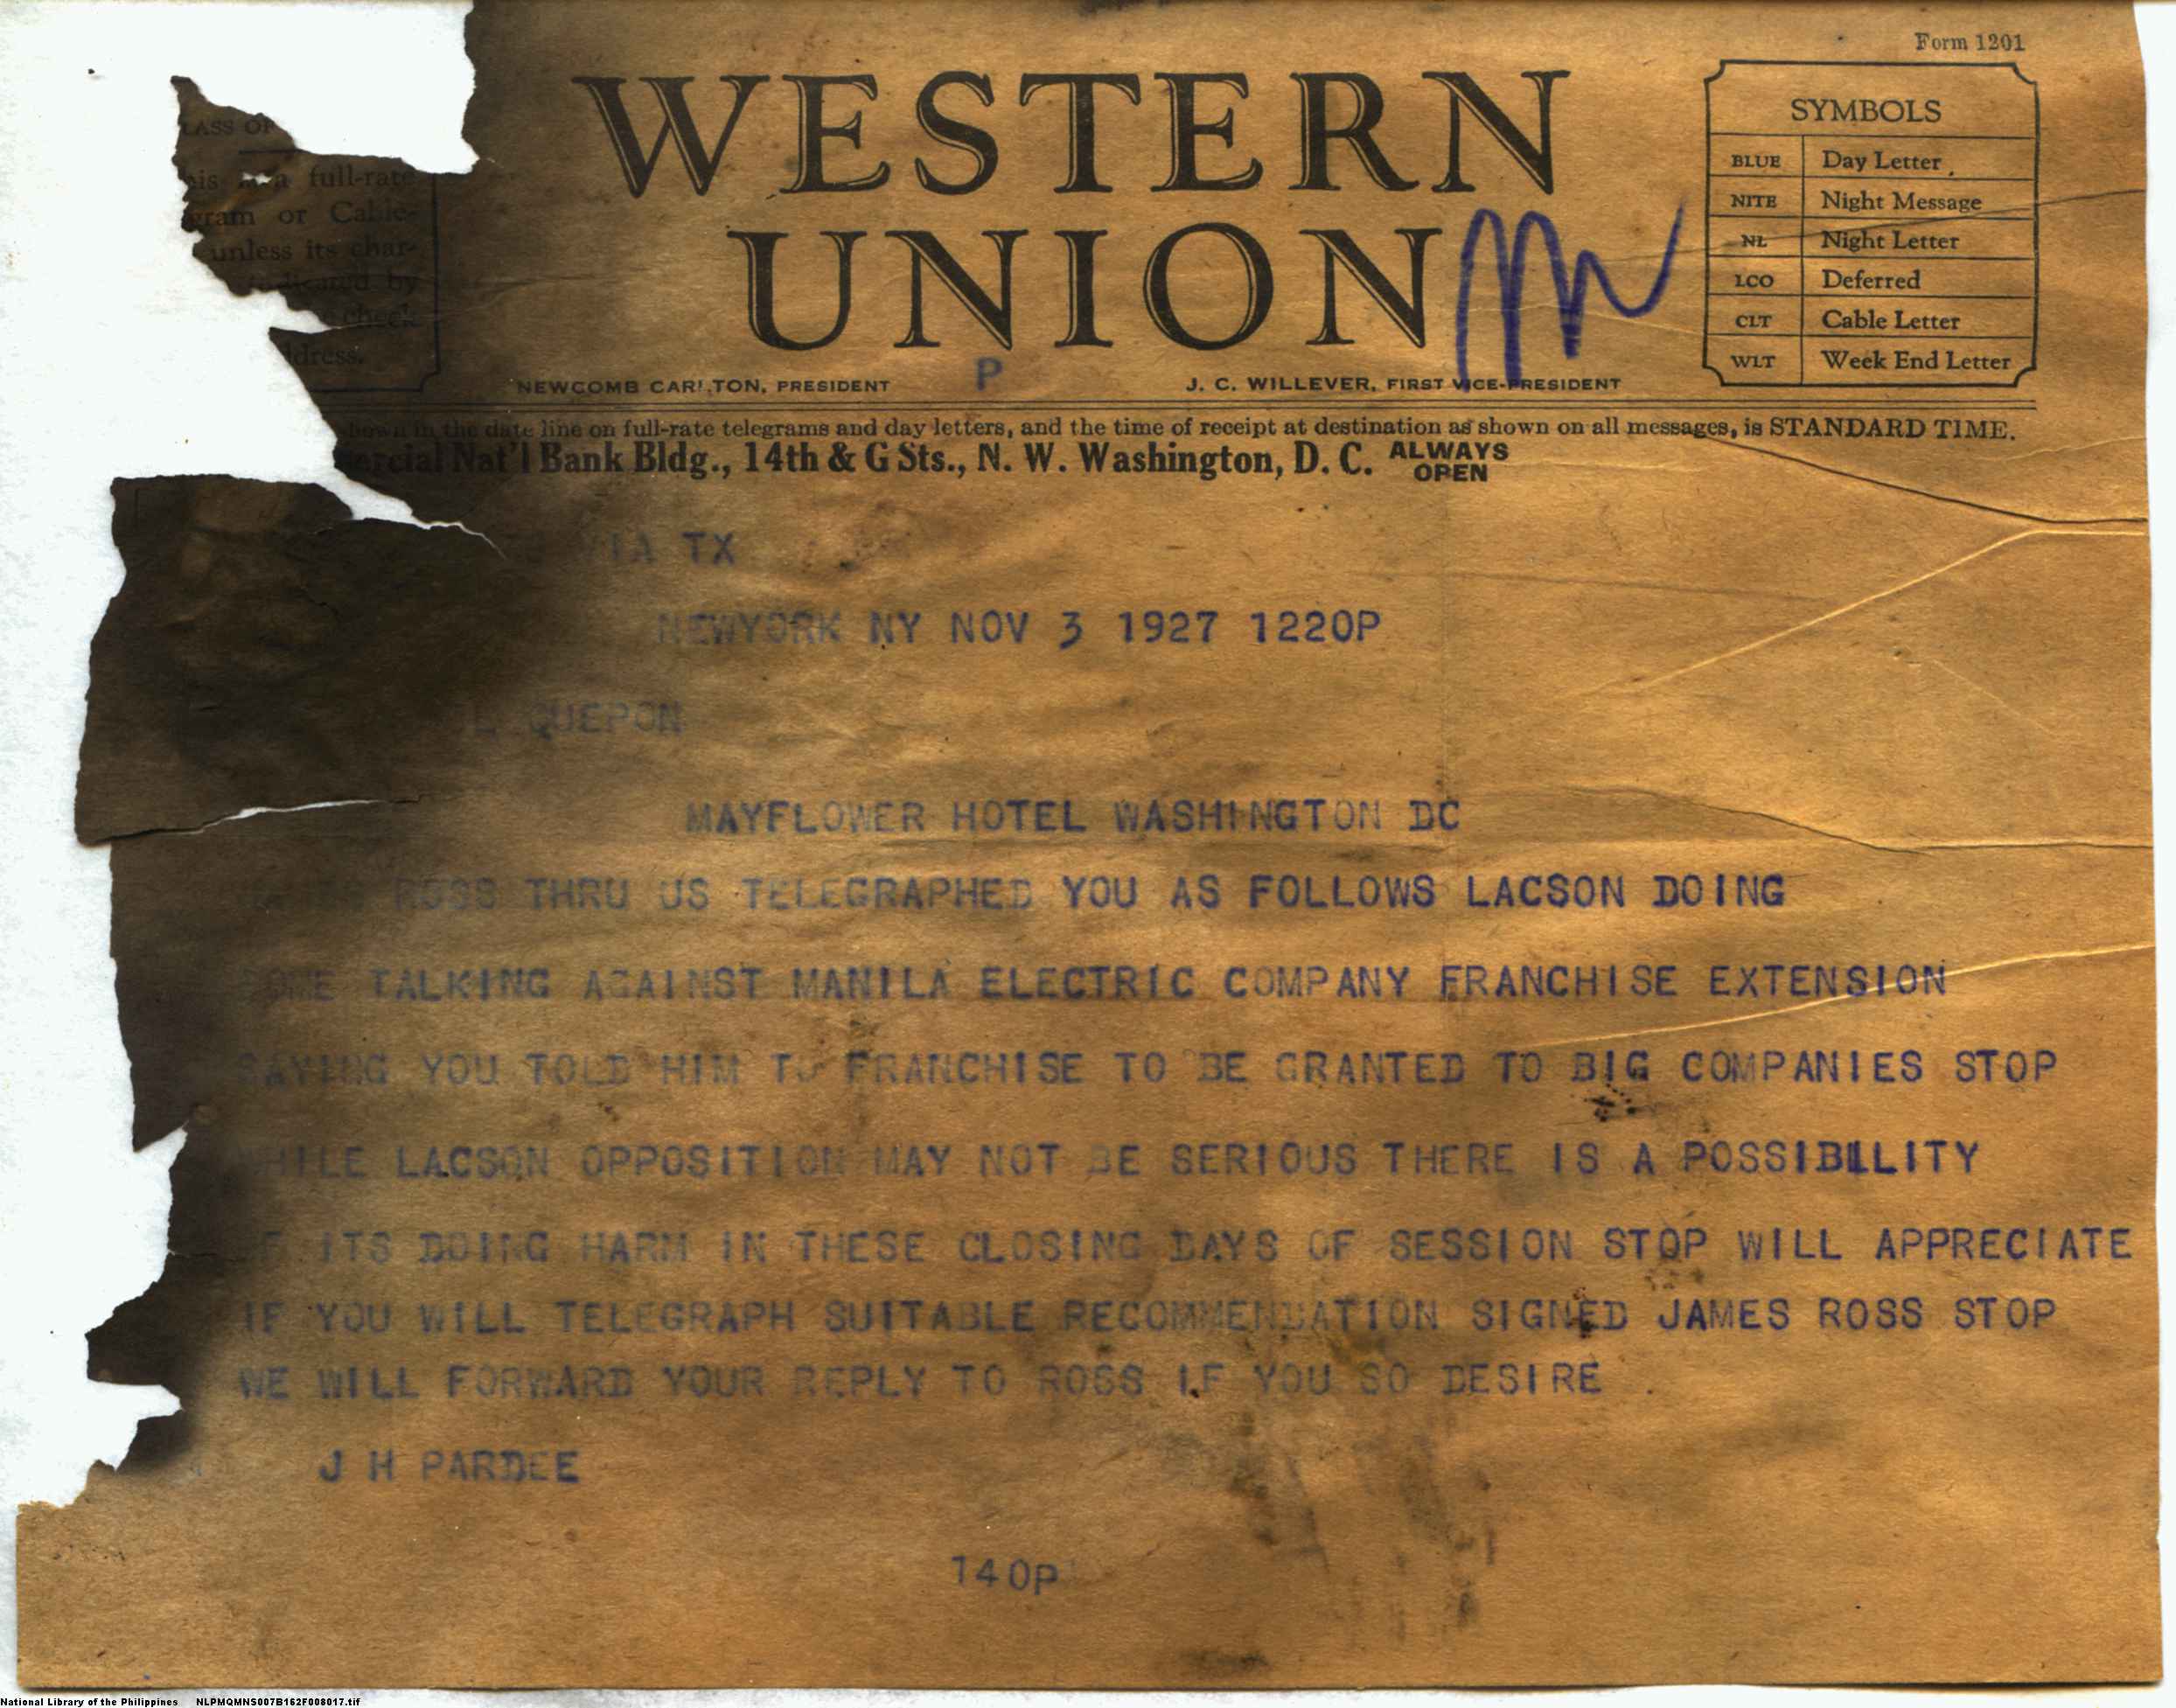 Form 1201
WESTERN
UNION
SYMBOLS
BLUE Day Letter
NITE Night Message
NL Night Letter
LCO Deferred
CLT Cable Letter
WLT Week End Letter
LASS OF
a full-rate
gram or Cable-
unless its char-
dicated by
check
dress.
P
NEWCOMB CARLTON, PRESIDENT J. C. WILLEVER, FIRST VICE-PRESIDENT
hown in the date line on full-rate telegrams and day letters, and the time of receipt at destination as shown on all messages, is STANDARD TIME.
ercial Nat'l Bank Bldg., 14th & G Sts., N. W. Washington, D. C. ALWAYS OPEN
VIA TX
NEWYORK NY NOV 3 1927 1220P
L QUEPON
MAYFLOWER HOTEL WASHINGTON DC
ROSS THRU US TELEGRAPHED YOU AS FOLLOWS LACSON DOING
SOME TALKING AGAINST MANILA ELECTRIC COMPANY FRANCHISE EXTENSION
SAYING YOU TOLD HIM TO FRANCHISE TO BE GRANTED TO BIG COMPANIES STOP
WHILE LACSON OPPOSITION MAY NOT BE SERIOUS THERE IS A POSSIBILLITY
OF ITS DOING HARM IN THESE CLOSING DAYS OF SESSION STOP WILL APPRECIATE
IF YOU WILL TELEGRAPH SUITABLE RECOMMENDATION SIGNED JAMES ROSS STOP
WE WILL FORWARD YOUR REPLY TO ROSS IF YOU SO DESIRE .
J H PARDEE
140P
National Library of the Philippines NLPMQMNS007B162F008017.tif